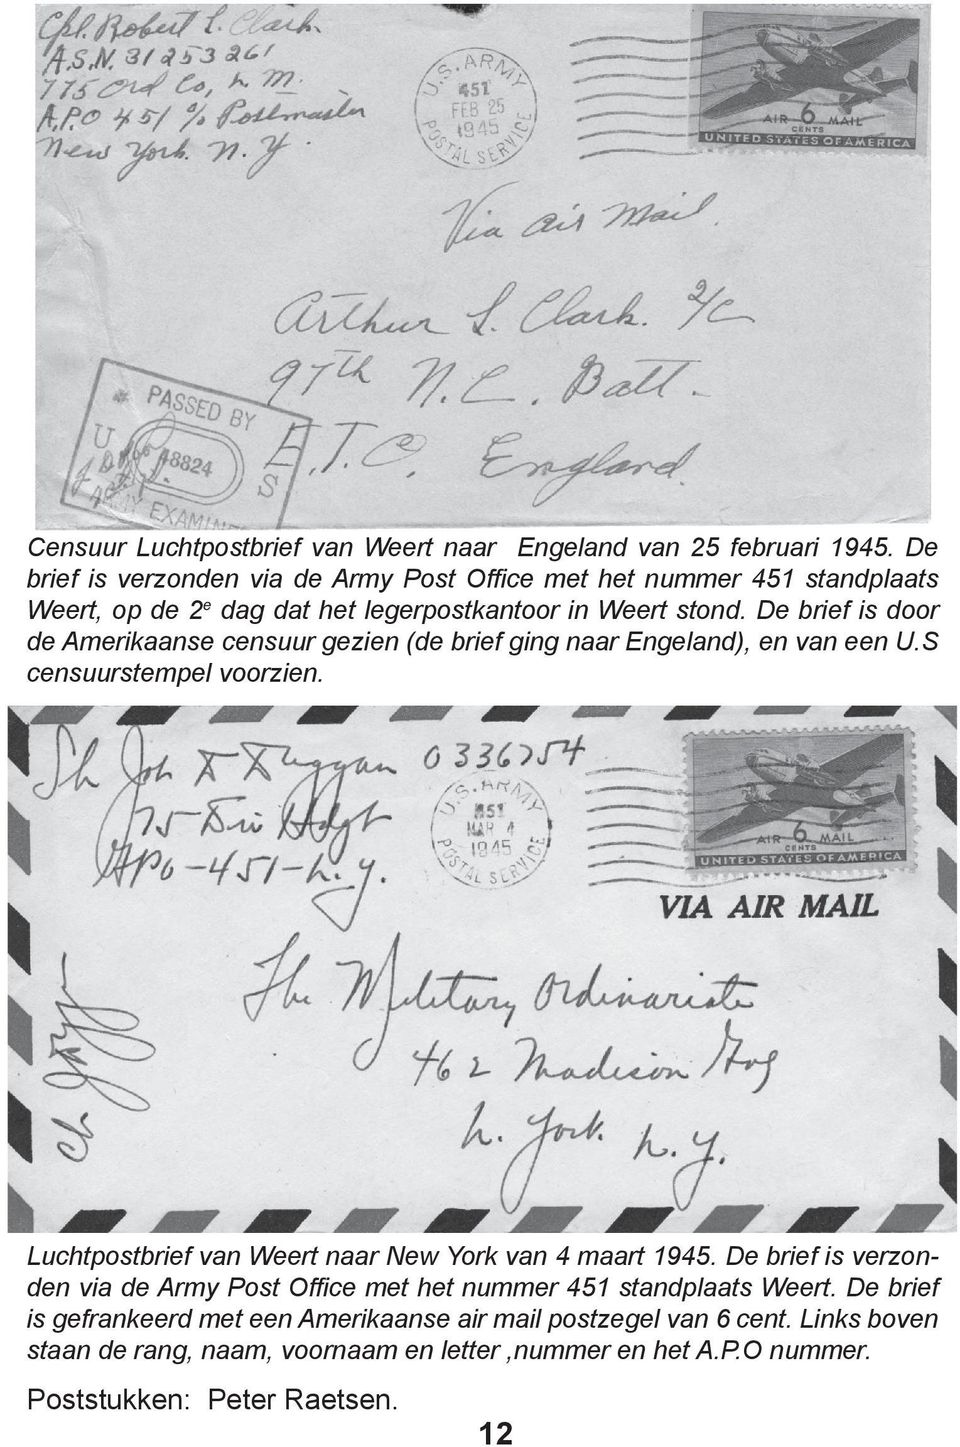 Cpl. Robert L. Clark.
A.S.N. 31253261
775 Ord Co, L. M.
A.P.O 451 % Postmaster
New York. N. Y.
U.S. ARMY
451
FEB 25
1945
POSTAL SERVICE
AIR 6 MAIL
CENTS
UNITED STATES OF AMERICA
Via Air Mail
Arthur L. Clark. 2/C
97th N.C. Batt.
E.T.O. England.
PASSED BY
U S
48824
ARMY EXAMINE
Censuur Luchtpostbrief van Weert naar Engeland van 25 februari 1945. De
brief is verzonden via de Army Post Office met het nummer 451 standplaats
Weert, op de 2e dag dat het legerpostkantoor in Weert stond. De brief is door
de Amerikaanse censuur gezien (de brief ging naar Engeland), en van een U.S
censuurstempel voorzien.
John F Duggan 0336754
75 Div Hdqt
APO-451-N.Y.
U.S. ARMY
451
MAR 4
1945
POSTAL SERVICE
AIR 6 MAIL
CENTS
UNITED STATES OF AMERICA
VIA AIR MAIL
The Military Ordinariate
462 Madison Ave
N. York. N.Y.
Luchtpostbrief van Weert naar New York van 4 maart 1945. De brief is verzon-
den via de Army Post Office met het nummer 451 standplaats Weert. De brief
is gefrankeerd met een Amerikaanse air mail postzegel van 6 cent. Links boven
staan de rang, naam, voornaam en letter ,nummer en het A.P.O nummer.
Poststukken: Peter Raetsen.
12